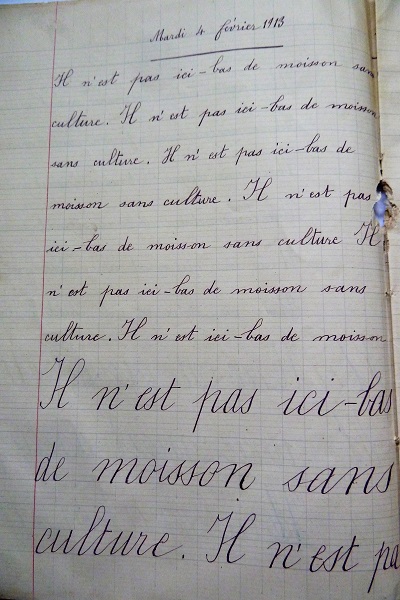 Mardi 4 février 1913
Il n'est pas ici-bas de moisson sans
culture. Il n'est pas ici-bas de moisson
sans culture. Il n'est pas ici-bas de
moisson sans culture. Il n'est pas
ici-bas de moisson sans culture Il
n'est pas ici-bas de moisson sans
culture. Il n'est ici-bas de moisson
Il n'est pas ici-bas
de moisson sans
culture. Il n'est pa